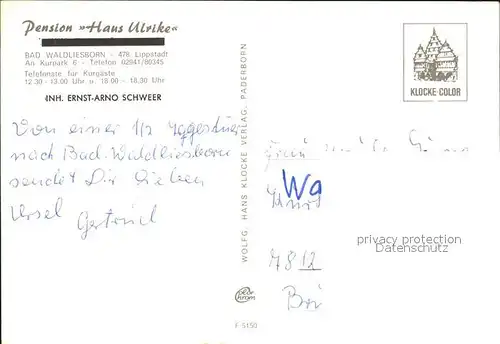 Pension »Haus Ulrike«
BAD WALDLIESBORN - 478 Lippstadt
An Kurpark 6 - Telefon 02941/80345
Telefonate für Kurgäste
12.30 - 13.00 Uhr u. 18.00 - 18.30 Uhr
INH. ERNST-ARNO SCHWEER
Von einer 1/2
nach Bad. Waldliesborn
sendet Dir lieben
Ursel
Gertrud
WOLFG. HANS KLOCKE VERLAG, PADERBORN
F 5150
KLOCKE-COLOR
Wa
privacy protection
Datenschutz
7812